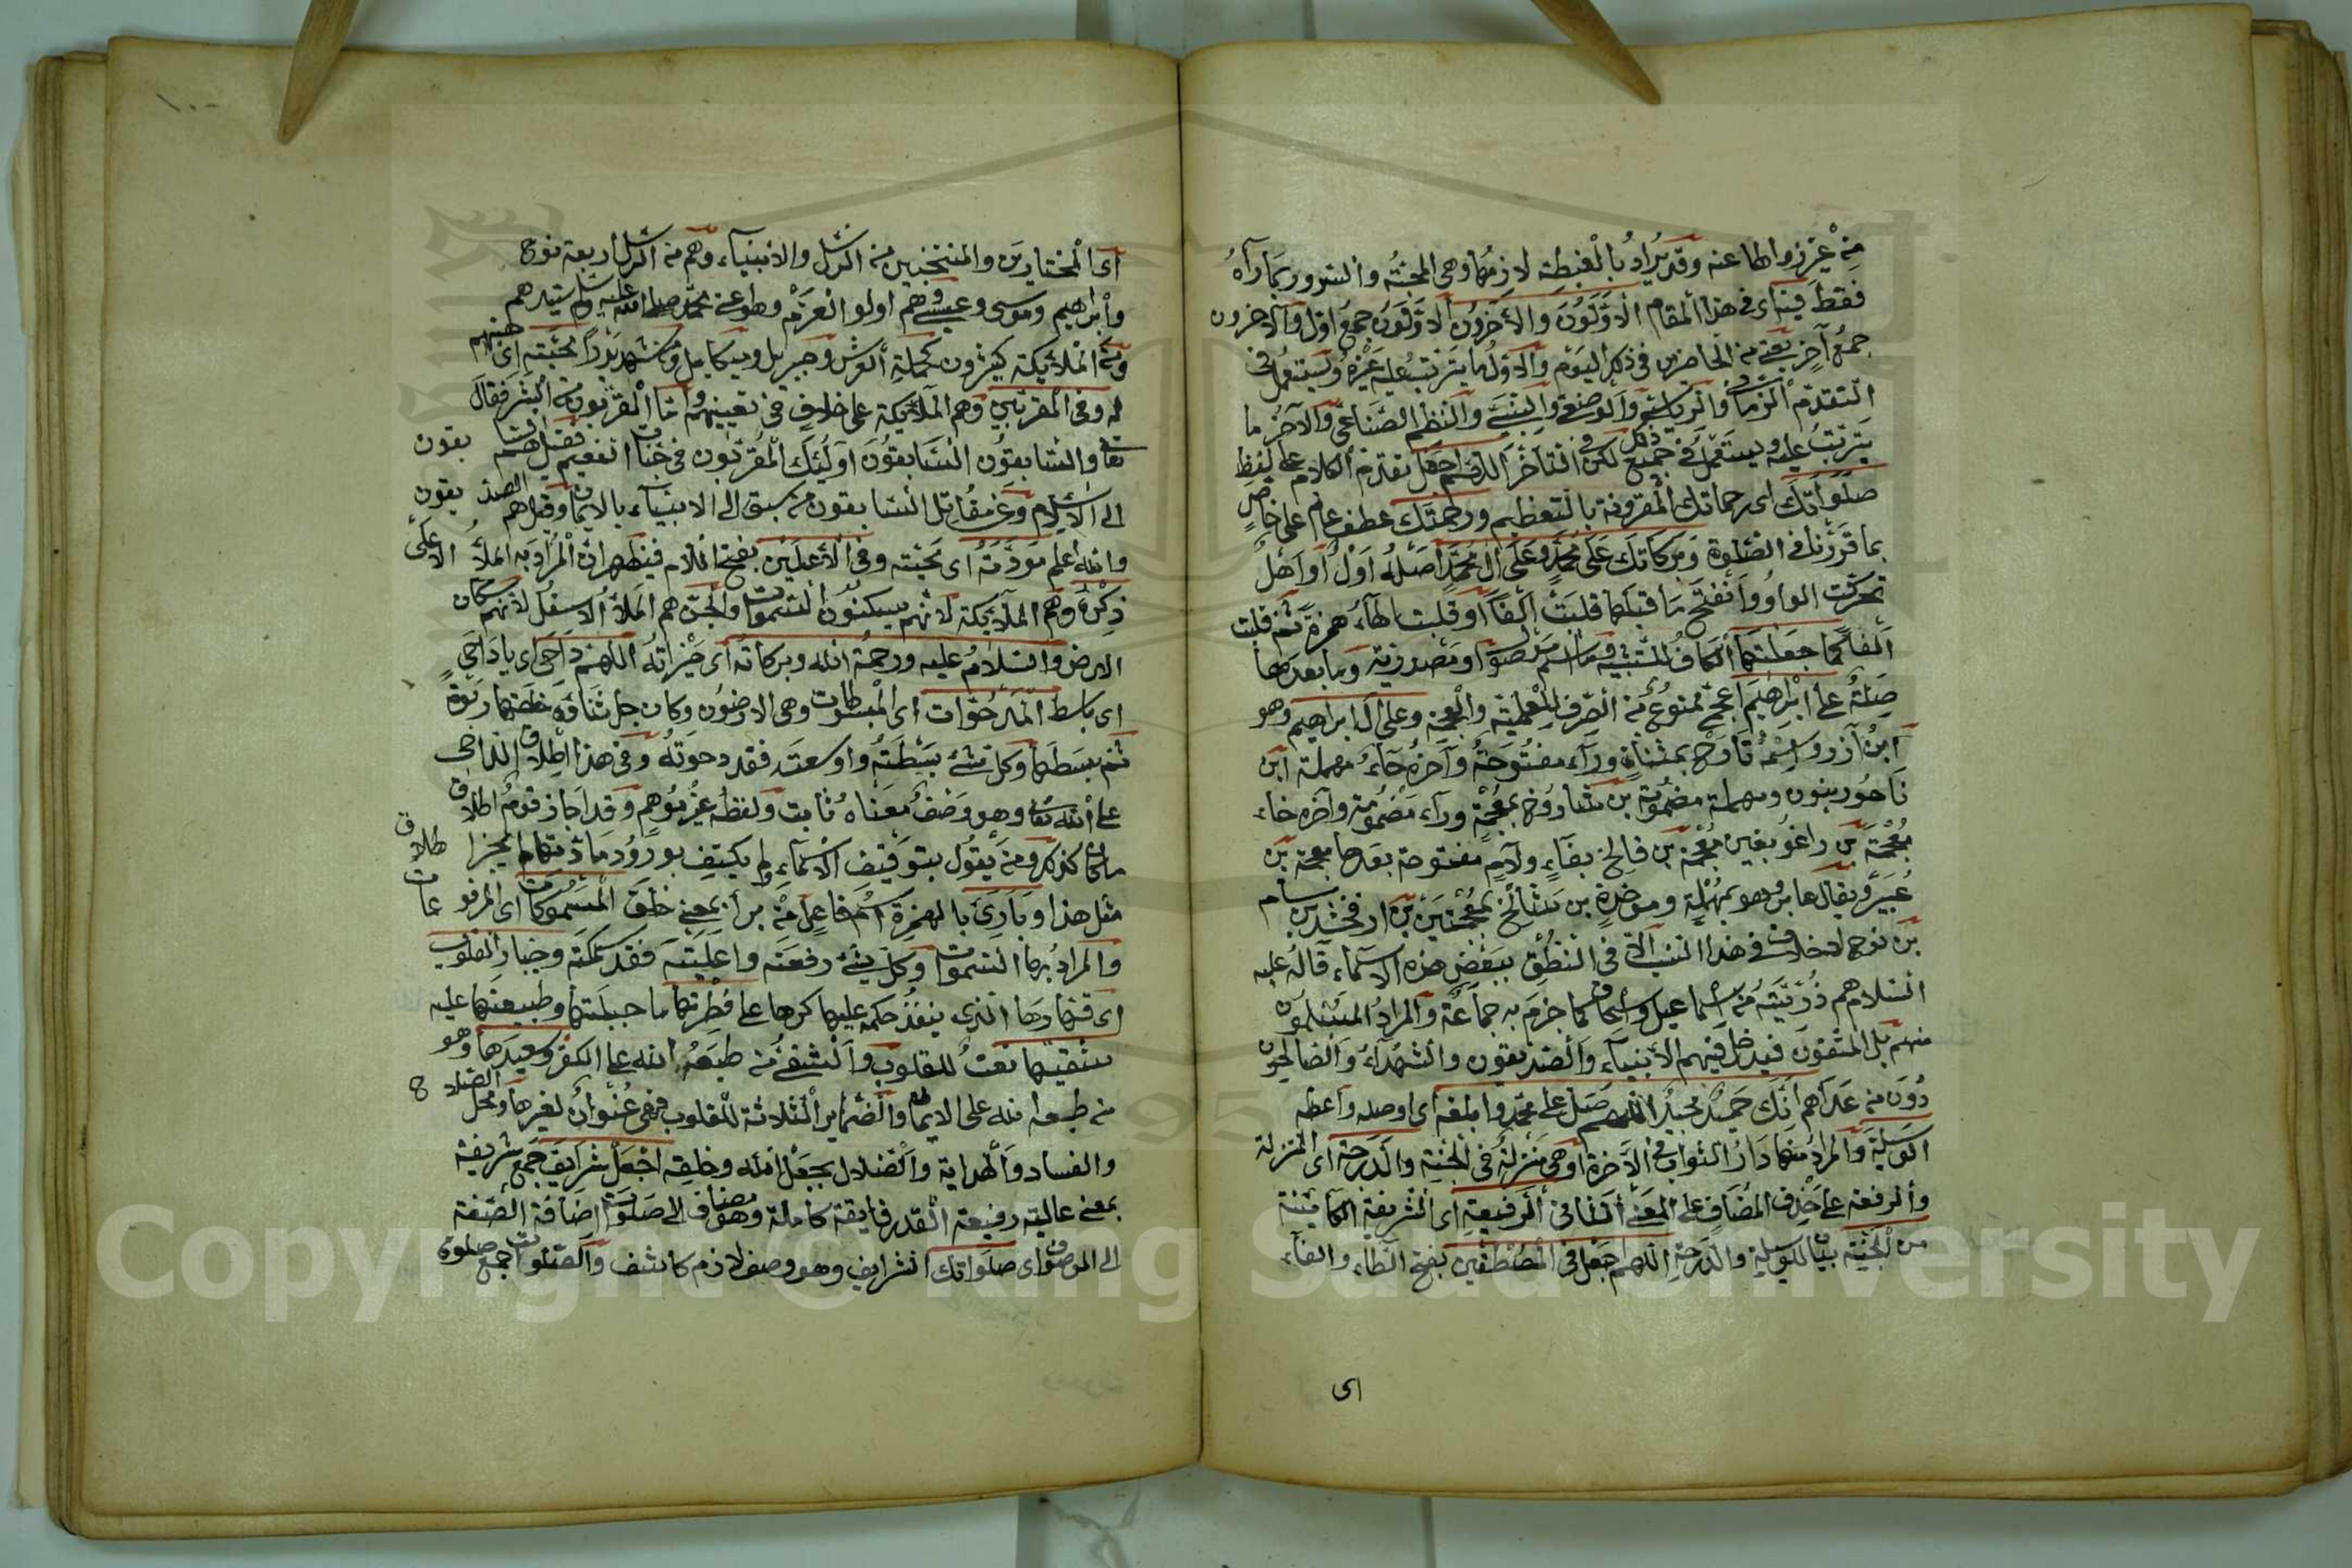 مِنْ غَيْرِ زوالها عنه وقد يُرادُ بالغبطة لازمُها وهي المحبّةُ والسرور بما رآهُ
فقط فيناى في هذا المقام الأوّلون والآخرون الأوّلون جمع اوّل والآخرون
جمعُ آخرٍ يعني من الحاضرين في ذكر اليوم والاوّل ما يترتب عليه غيره ويستعمل في
التقدّم الزماني والرياسي والوضعي والنسبي والنظم الصناعي والآخر ما
يترتّبُ عليه ويستعمل في جميع ذلك لكن في التأخّر اللهم اجعل تقدم الكلام على لفظ
صلواتك اى رحماتك المقرونة بالتعظيم ورحمتك عطف عام على خاصٍ
بما قررنا في الصلوة وبركاتك على محمّد وعلى آل محمّد اصله اول او اهل
تحركت الواو وانفتح ما قبلها قلبت الفًا او قلبت الهاء همزة ثم قلبت
الفا كما جعلتها الكاف للتشبيه وما اسم موصول او مصدرية وما بعدها
صلة على ابراهيم اعجمي ممنوع من الصرف للعلمية والعجمة وعلى آل ابراهيم وهو
ابن آزر واسمه تارح بمثناة وراء مفتوحة وآخره حاء مهملة ابن
ناحور بنون ومهملة مضمومة بن شاروخ بمعجمة وراء مضمومة وآخره خاء
معجمة بن راغو بغين معجمة بن فالخ بفاء ولام مفتوحة بعدها معجمة بن
عُبَير ويقال عابر وهو بمهملة وموحدة بن شالخ بمعجمتين بن ارفخشد بن سام
بن نوح لا خلاف في هذا النسب الا في النطق ببعض هذه الاسماء قاله عليه
السلام هم ذريته من اسماعيل واسحاق كما جزم به جماعة والمراد المسلمون
منهم بل المتقون فيدخل فيهم الأنبياء والصديقون والشهداء والصالحون
دون من عداهم انّك حميدٌ مجيدٌ اللهم صلّ على محمّد وابلغه اى اوصله واعطه
الوسيلة والمراد منها دار الثواب في الآخرة او هي منزلة في الجنة والدرجة اى المنزلة
والرفعة على حذف المضاف على المعنى الثاني الرفيعة اى الشريفة الكائنة
من الجنة بيان للوسيلة والدرجة اللهم اجعل في المصطفين بفتح الطاء والفاء
اى
١٠٠
اى المختارين والمنتخبين من الرسل والانبياء وهم من الرسل اربعة نوح
وابراهيم وموسى وعيسى وهم اولو العزم وهو عنى محمد صلى الله عليه وسلم سيدهم
ومن الملائكة كثيرون كحملة العرش وجبريل وميكائيل ومن شهد بدرًا محبته اى حبهم
له وفي المقربين وهم الملائكة على خلاف في تعيينهم واما المقربون من البشر فقال
تعالى والسابقون السابقون اولئك المقربون في جنات النعيم فقيل هم السابقون
الى الاسلام وعن مقاتل السابقون من سبق الى الانبياء بالايمان وقيل هم الصديقون
والله اعلم مودّته اى محبّته وفي الأعلين بفتح اللام فيظهر ان المراد به الملأ الاعلى
ذكره وهم الملائكة لانهم يسكنون السموات والجن هم الملأ الاسفل لانهم سكان
الارض والسلام عليه ورحمة الله وبركاته اى خيراته اللهم داحي اى يا داحي
اى باسط المدحوّات اى المبسوطات وهي الارضون وكان جل ثناؤه خلقها ربوة
ثم بسطها وكل شئ بسطته واوسعته فقد دحوته وفي هذا اطلاق الداحي
على الله تعالى وهو وصف معناه ثابت ولفظه غير موهم وقد اجاز قوم اطلاق
ما كان كذلك ومن يقول بتوقيف الاسماء ولم يكتف بورود مادتها لم يجز اطلاق
مثل هذا وبارئ بالهمزة اسم فاعل من برأ بمعنى خلق المسموكات اى المرفوعات
والمراد بها السموات وكل شئ رفعته واعليته فقد سمكته وجبار القلوب
اى قهارها الذي ينفذ حكمه عليها كرها على فطرتها ما جبلتها وطبيعتها عليه
شقيها نعت للقلوب والشقي من طبعه الله على الكفر وسعيدها وهو
من طبعه الله على الايمان والضماير الثلاثة للقلوب فهي عنوان لغيرها ومحل الصلاح
والفساد والهداية والضلال بجعل الله وخلقه اجعل شرايف جمع شريفة
بمعنى عالية رفيعة القدر فايقة كاملة وهو مضاف الى صلوات اضافة الصفة
الى الموصوف اى صلواتك الشرايف وهو وصف لازم كاشف والصلوات جمع صلوة
Copyright © King Saud University